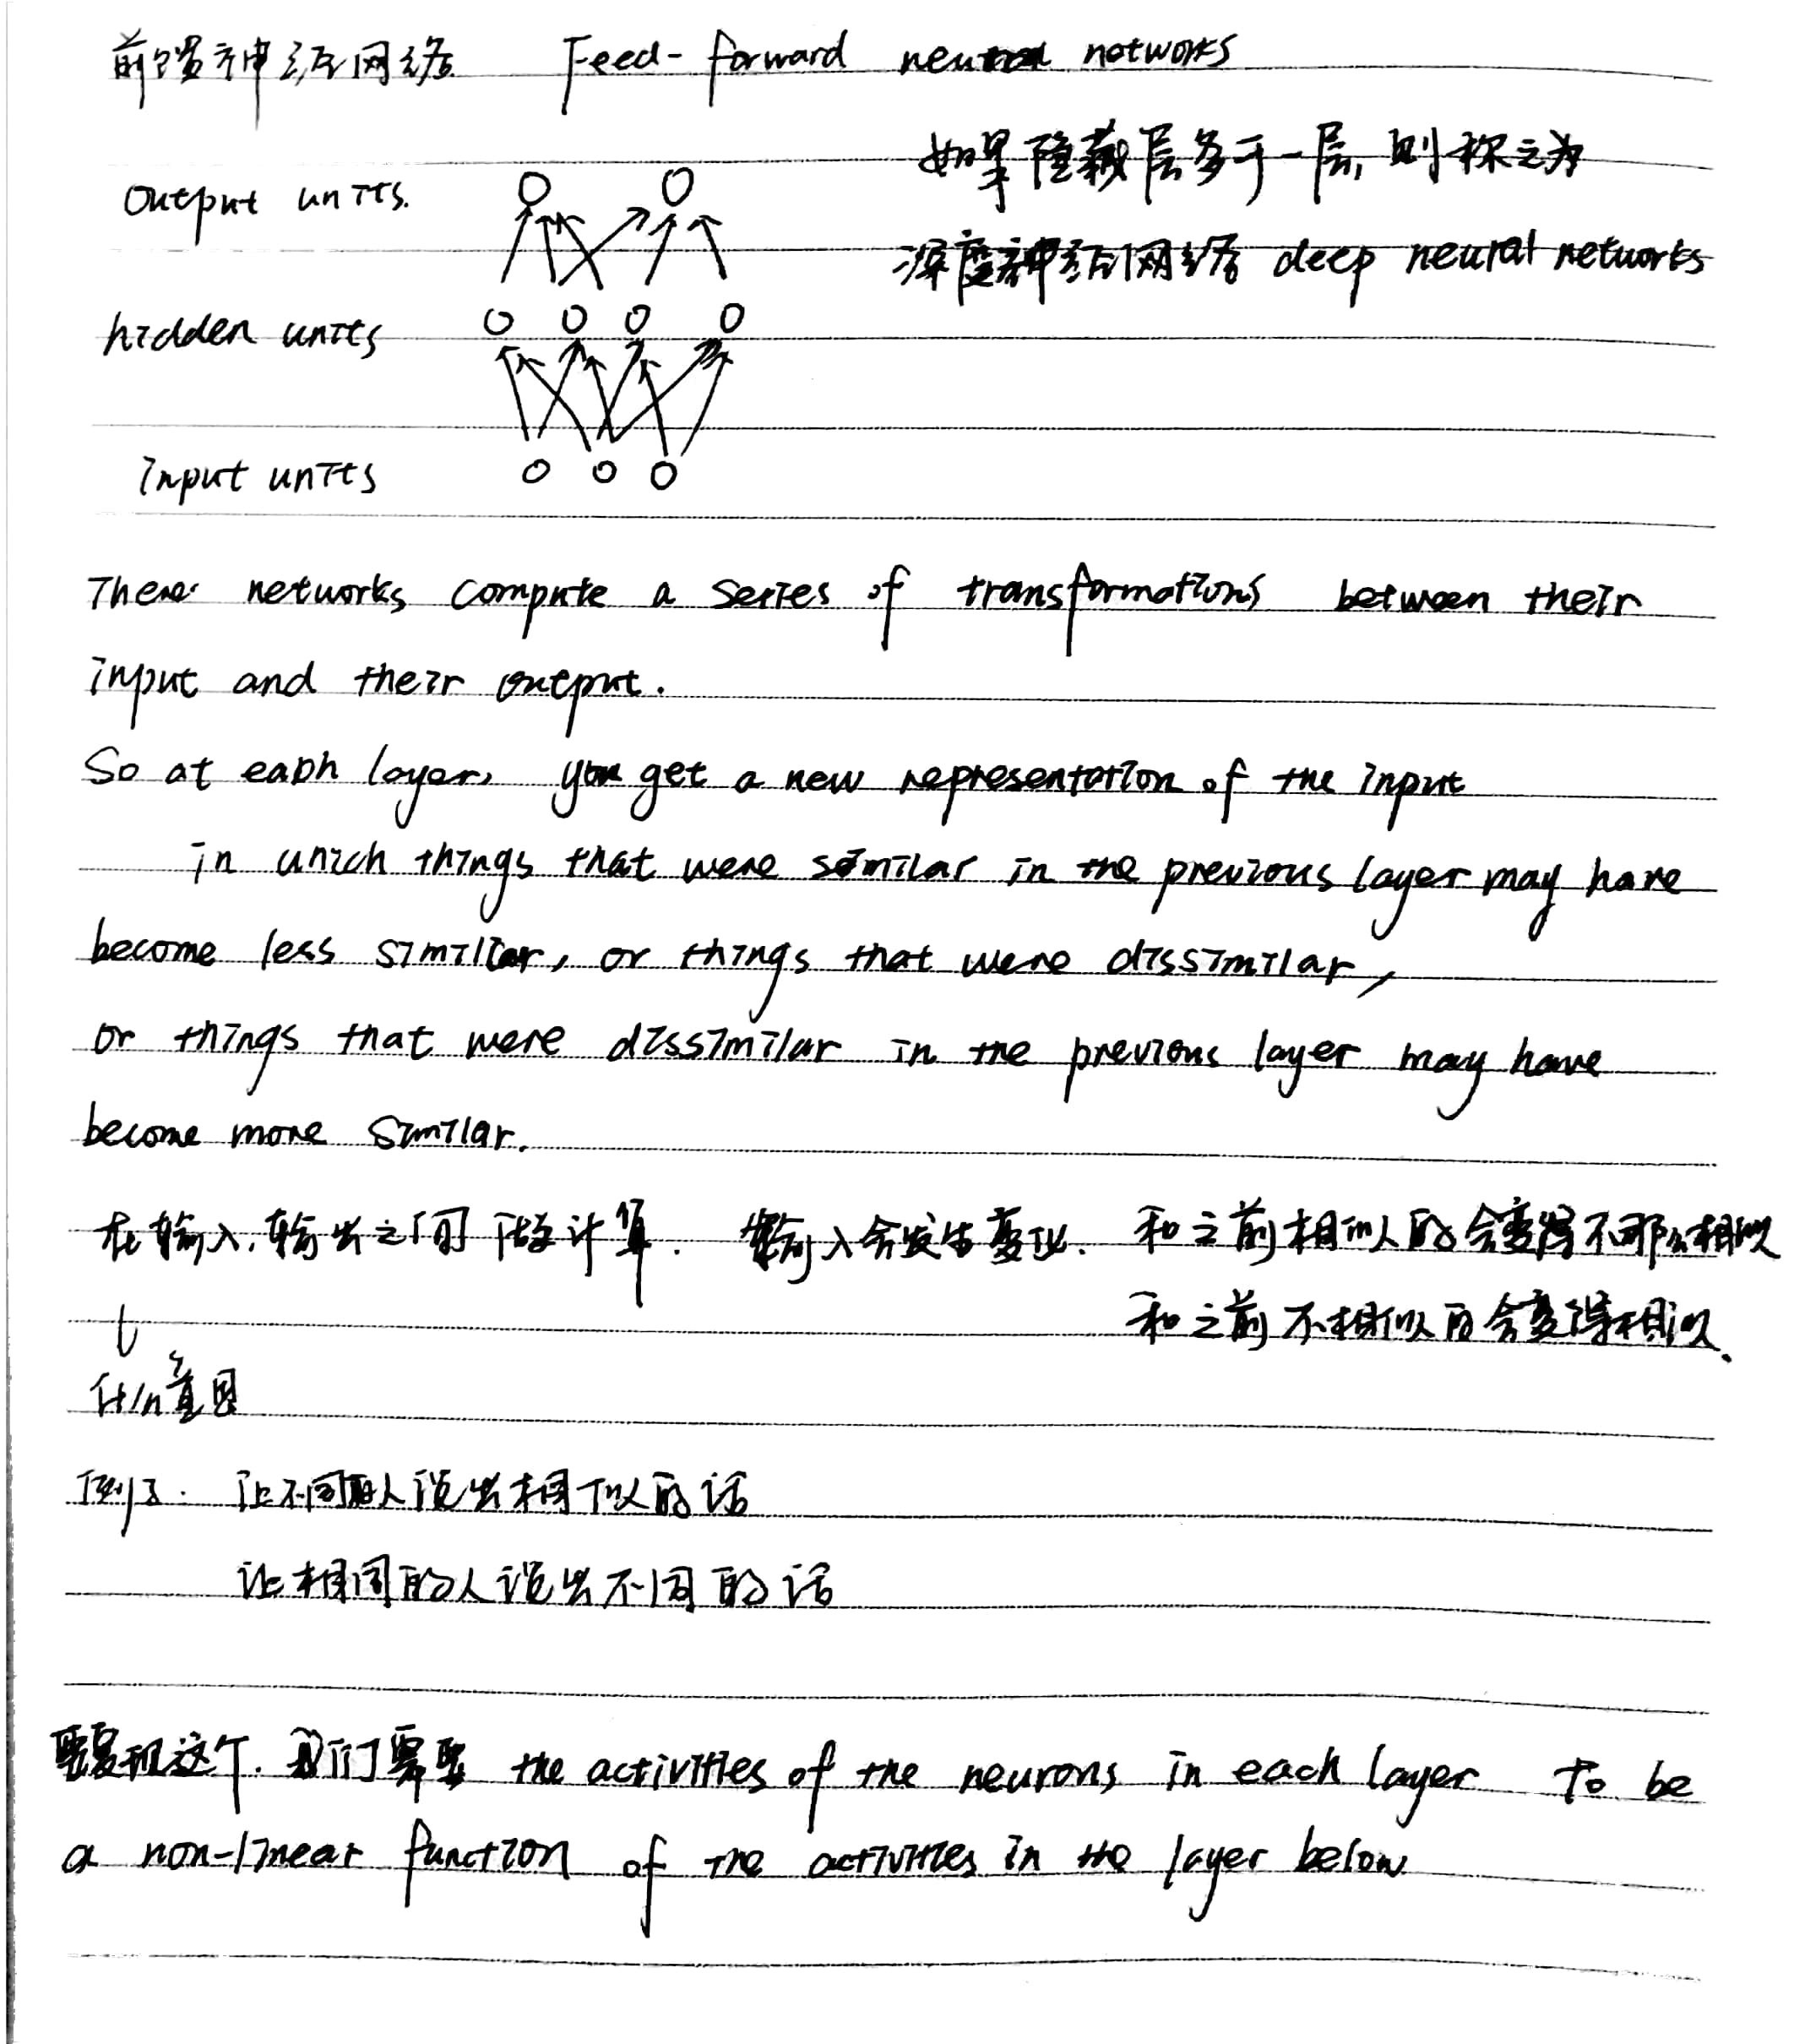 前馈神经网络 Feed-forward neural networks
如果隐藏层多于一层,则称之为
Output units.
深度神经网络 deep neural networks
hidden units
Input units
These networks compute a series of transformations between their
input and their output.
So at each layer, you get a new representation of the input
in which things that were similar in the previous layer may have
become less similar, or things that were dissimilar,
or things that were dissimilar in the previous layer may have
become more similar.
在输入,输出之间做计算. 输入会发生变化. 和之前相似的会变得不那么相似
和之前不相似的会变得相似.
什么意思
例子. 让不同的人说出相似的话
让相同的人说出不同的话
要实现这个. 我们需要 the activities of the neurons in each layer to be
a non-linear function of the activities in the layer below